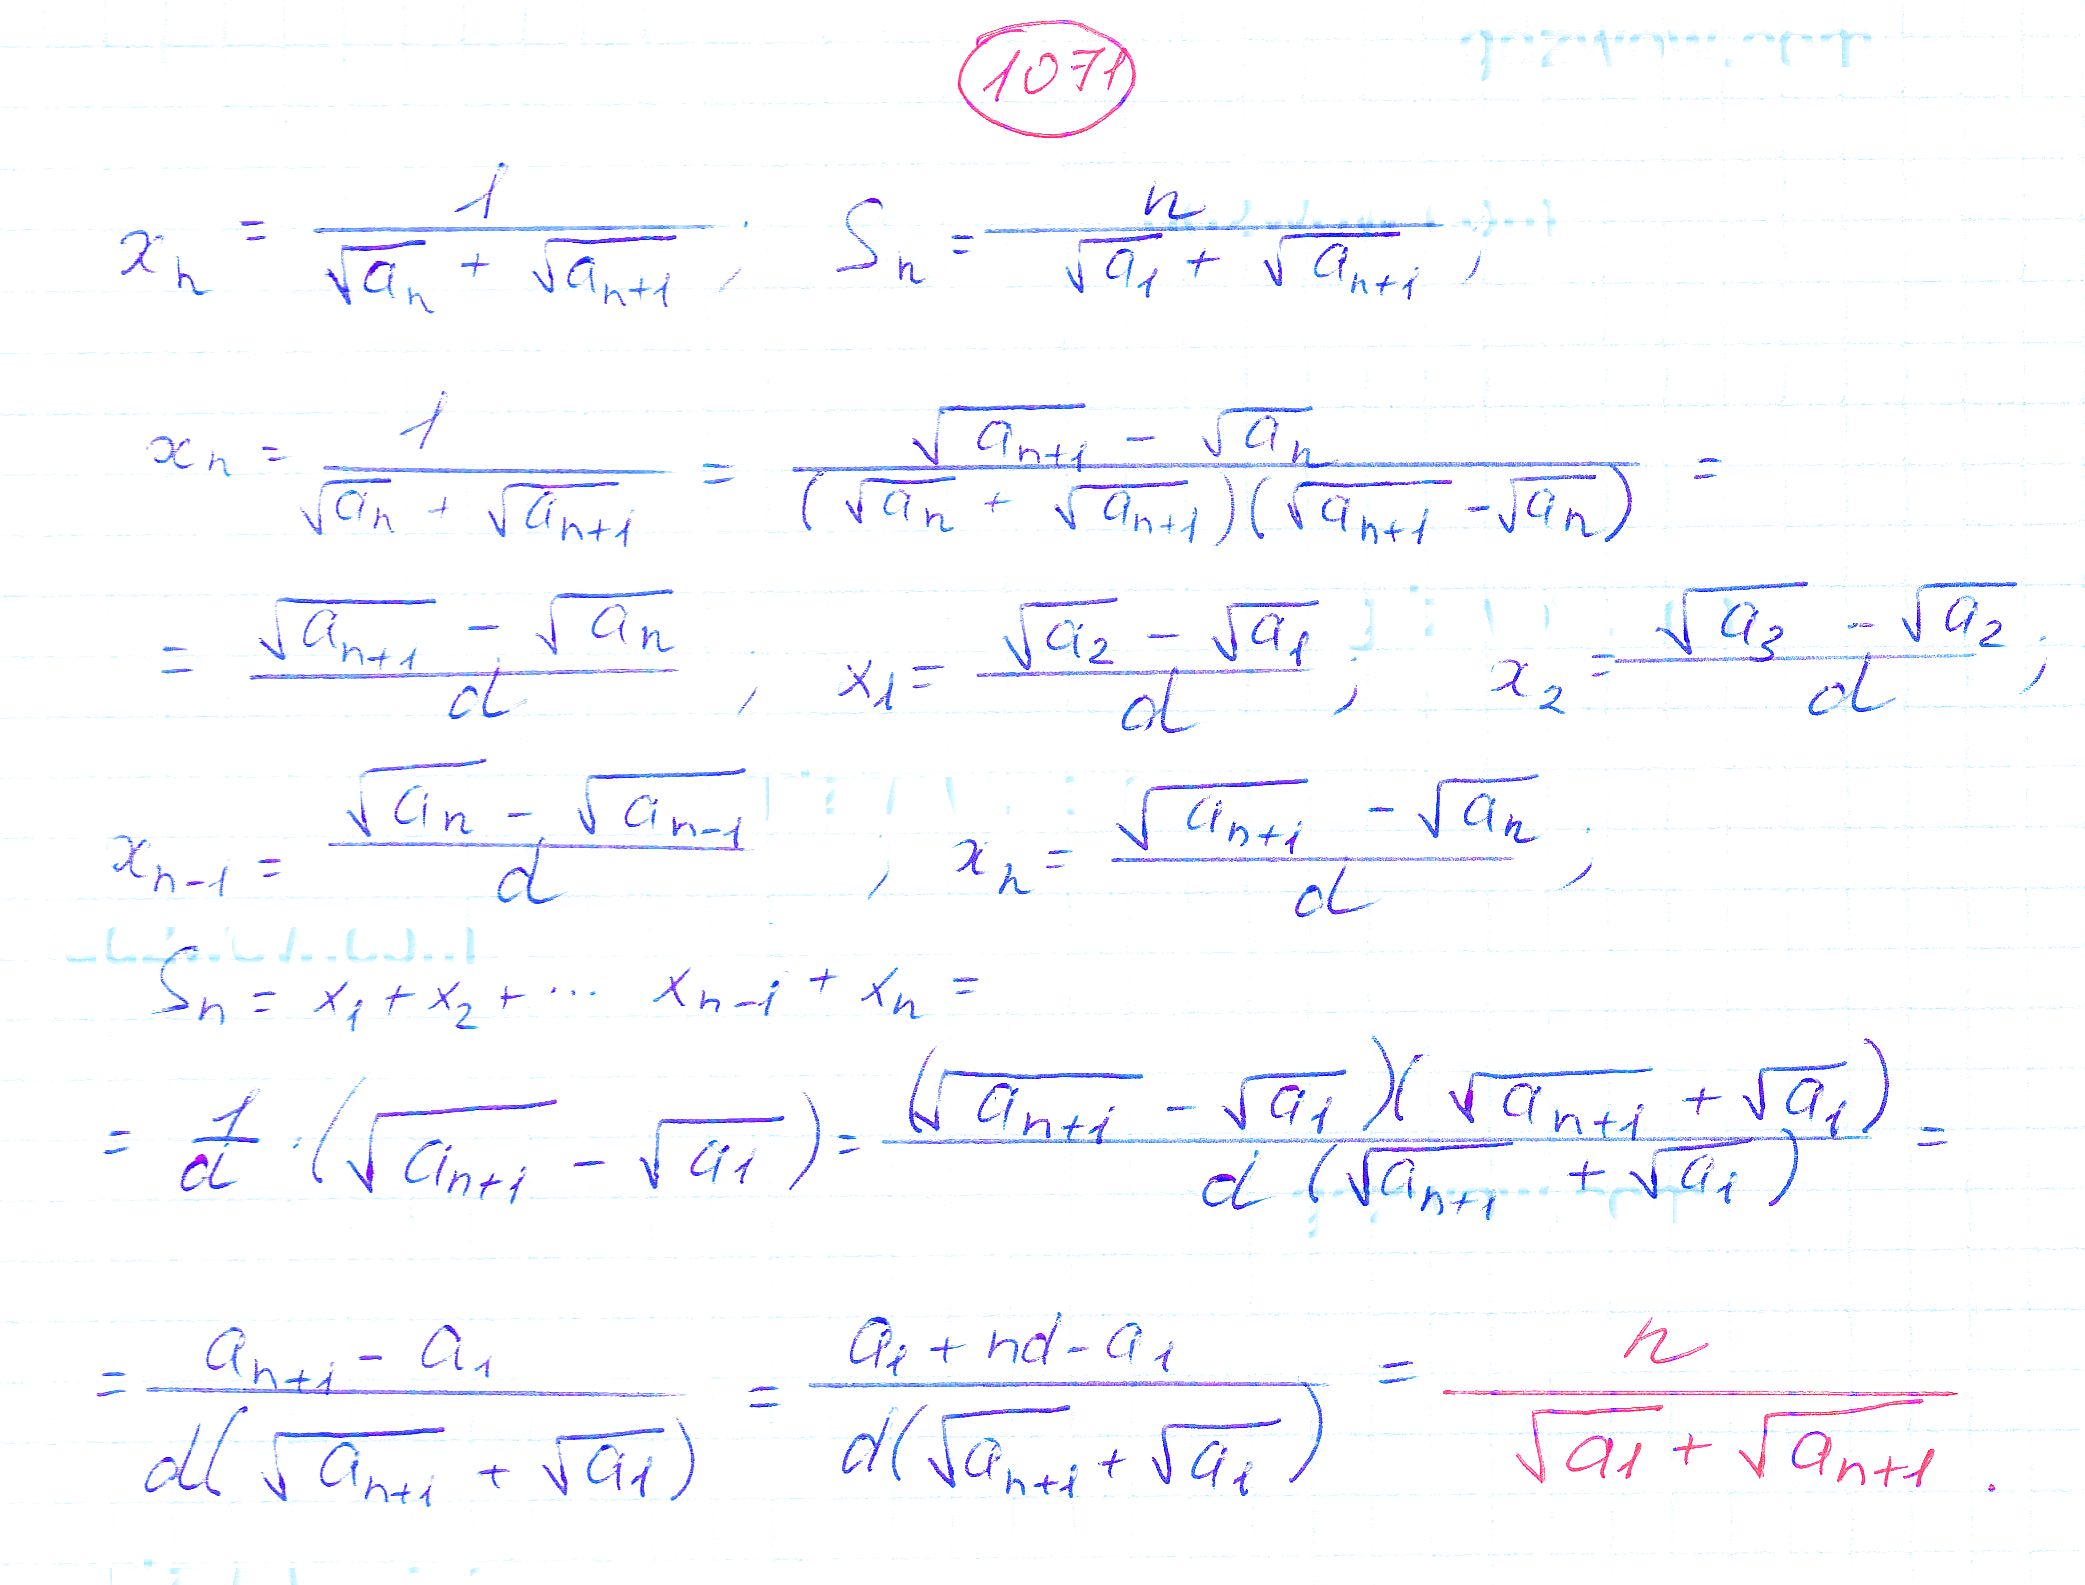 1071
xₙ = 1 / (√aₙ + √aₙ₊₁); Sₙ = n / (√a₁ + √aₙ₊₁);
xₙ = 1 / (√aₙ + √aₙ₊₁) = (√aₙ₊₁ - √aₙ) / ((√aₙ + √aₙ₊₁)(√aₙ₊₁ - √aₙ)) =
= (√aₙ₊₁ - √aₙ) / d; x₁ = (√a₂ - √a₁) / d; x₂ = (√a₃ - √a₂) / d;
xₙ₋₁ = (√aₙ - √aₙ₋₁) / d, xₙ = (√aₙ₊₁ - √aₙ) / d;
Sₙ = x₁ + x₂ + ... xₙ₋₁ + xₙ =
= 1/d · (√aₙ₊₁ - √a₁) = ((√aₙ₊₁ - √a₁)(√aₙ₊₁ + √a₁)) / (d (√aₙ₊₁ + √a₁)) =
= (aₙ₊₁ - a₁) / (d(√aₙ₊₁ + √a₁)) = (a₁ + nd - a₁) / (d(√aₙ₊₁ + √a₁)) = n / (√a₁ + √aₙ₊₁).